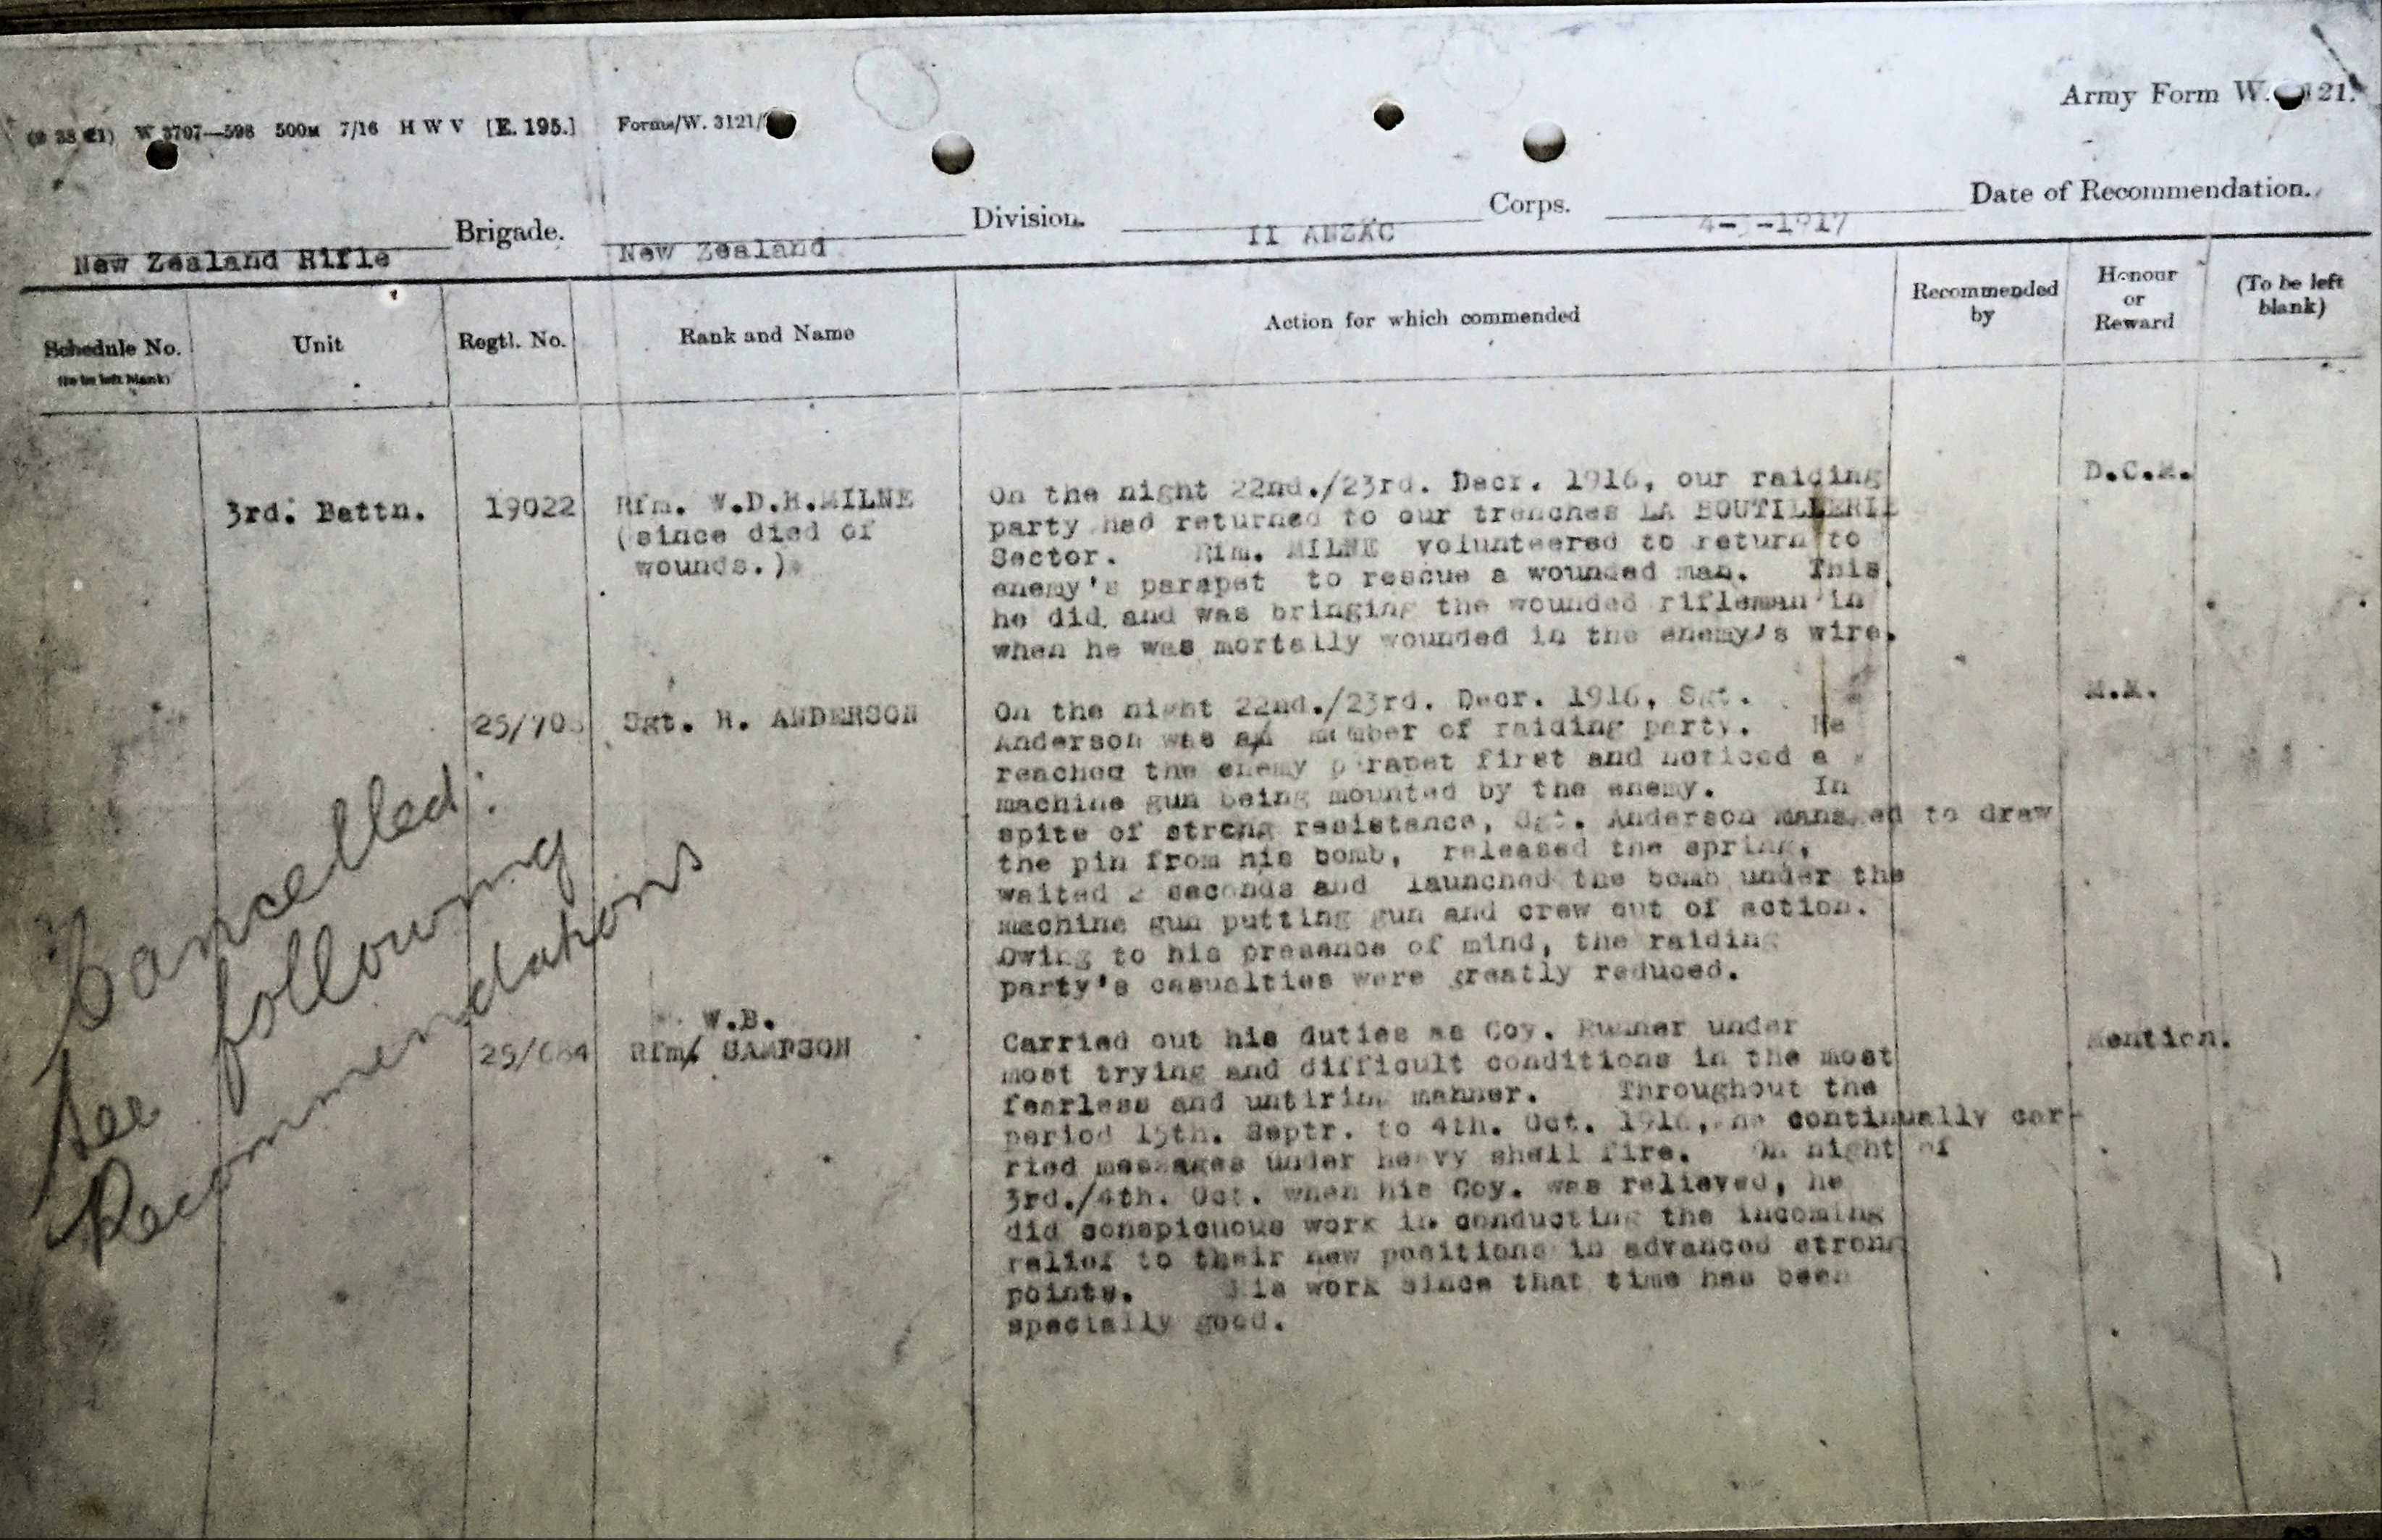 Army Form W. 21.
W 3707—598 500M 7/16 H W V [E. 195.] Forms/W. 3121/
New Zealand Rifle Brigade. New Zealand Division. II ANZAC Corps. 1917 Date of Recommendation.
Schedule No. (to be left blank) Unit Regtl. No. Rank and Name Action for which commended Recommended by Honour or Reward (To be left blank)
3rd. Battn. 19022 Rfm. W.D.H.MILNE (since died of wounds.) D.C.M.
On the night 22nd./23rd. Decr. 1916, our raiding
party had returned to our trenches LA BOUTILLERIE
Sector. Rfm. MILNE volunteered to return to
enemy's parapet to rescue a wounded man. This
he did and was bringing the wounded rifleman in
when he was mortally wounded in the enemy's wire.
Sgt. H. ANDERSON M.M.
On the night 22nd./23rd. Decr. 1916, Sgt.
Anderson was a member of raiding party. He
reached the enemy parapet first and noticed a
machine gun being mounted by the enemy. In
spite of strong resistance, Sgt. Anderson managed to draw
the pin from his bomb, released the spring,
waited 2 seconds and launched the bomb under the
machine gun putting gun and crew out of action.
Owing to his presence of mind, the raiding
party's casualties were greatly reduced.
W.B.
Rfm. SAMPSON Mention.
Carried out his duties as Coy. Runner under
most trying and difficult conditions in the most
fearless and untiring manner. Throughout the
period 15th. Septr. to 4th. Oct. 1916, he continually car-
ried messages under heavy shell fire. On night of
3rd./4th. Oct. when his Coy. was relieved, he
did conspicuous work in conducting the incoming
relief to their new positions in advanced strong
points. His work since that time has been
specially good.
Cancelled:
See following
Recommendations